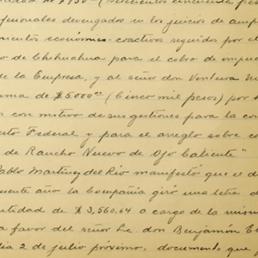 $750 (Setecientos cincuenta pesos
fesionales devengados en los juicios de ampa
mientos económico-coactivos seguidos por el
o de Chihuahua para el cobro de impue
de la Empresa, y al señor don Ventura
uma de $5000 (Cinco mil pesos) por
con motivo de sus gestiones para la con
cuto Federal y para el arreglo sobre co
de Rancho Nuevo de Ojo Caliente"
Pablo Martínez del Río manifestó que el d
uente año la Compañía giró una letra d
ntidad de $3,560.64 a cargo de la misma
a favor del señor Lic. don Benjamín E
día 2 de julio próximo, documento que